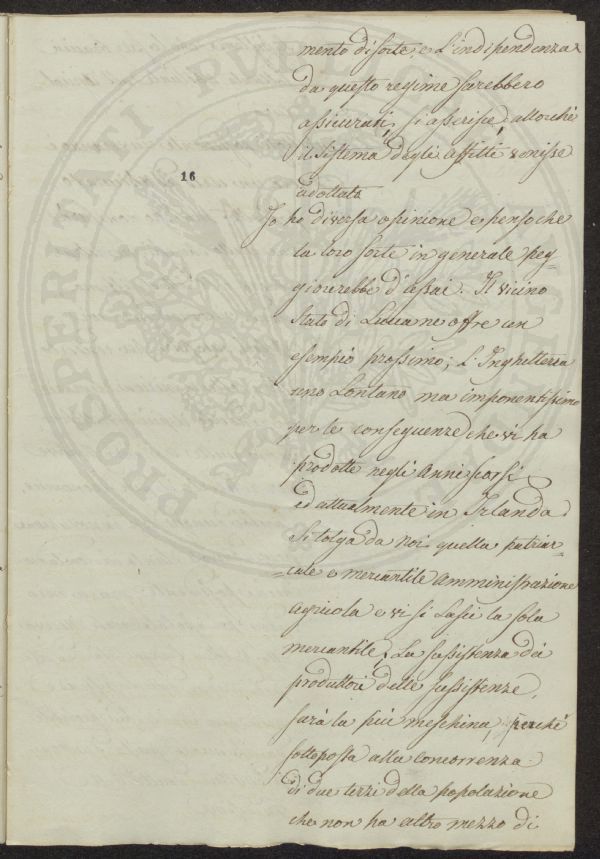 mento di sorte, e l'indipendenza
da questo regime sarebbero
assicurati, si asserisce, allorchè
il sistema degli affitti venisse
adottato
16
Io ho diversa opinione e penso che
la loro sorte in generale peg-
giorerebbe d'assai. Il vicino
stato di Lucca ne offre un
esempio prossimo; l'Inghilterra
uno lontano ma imponentissimo
per le conseguenze che vi ha
prodotte negli anni scorsi
ed attualmente in Irlanda
Si tolga da noi quella patriar-
=cale e mercantile amministrazione
agricola e vi si lasci la sola
mercantile; La sussistenza dei
produttori delle sussistenze,
sarà la più meschina, perchè
sottoposta alla concorrenza
di due terzi della popolazione
che non ha altro mezzo di
PROSPERITATI PUBLICAE